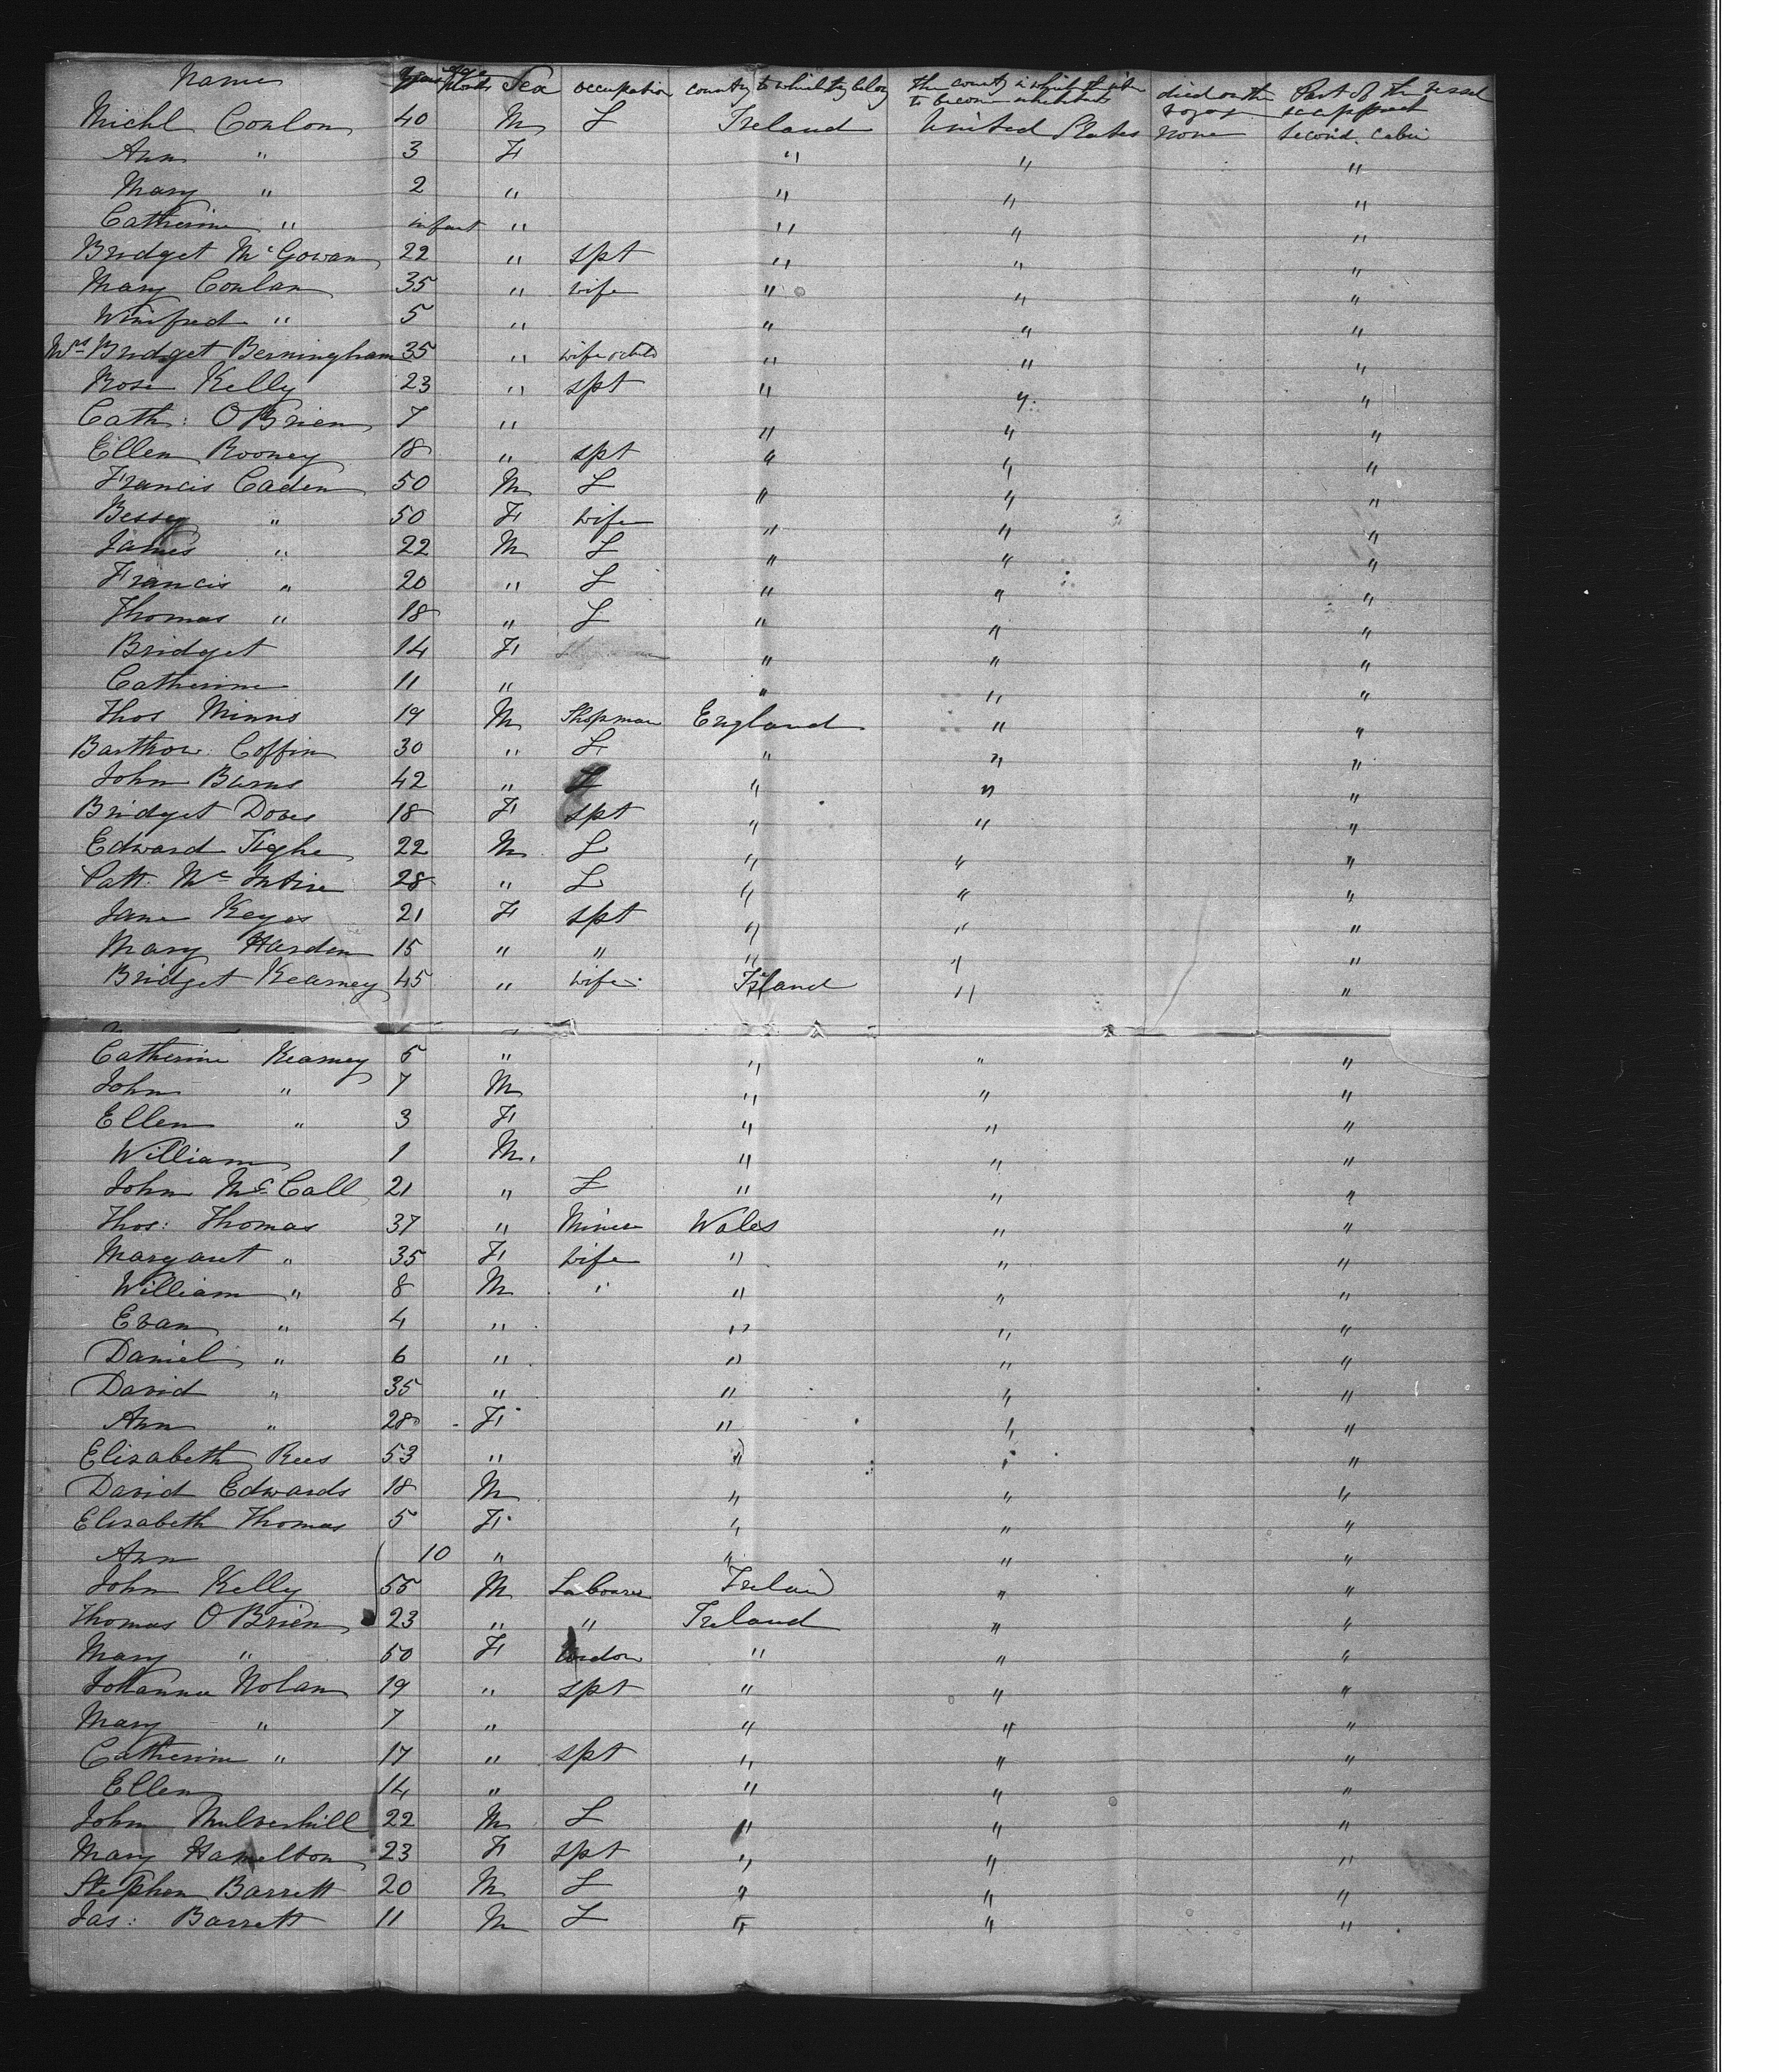 Name Years Age Months Sex occupation country to which they belong The country in which they intend to become inhabitants died on the voyage Part of the vessel occupied
Michl Conlon 40 M L Ireland United States none Second Cabin
Ann " 3 F " " "
Mary " 2 " " " "
Catherine " infant " " " "
Bridget McGowan 22 " spt " " "
Mary Conlan 35 " wife " " "
Winifred " 5 " " " "
Mrs Bridget Berningham 35 " wife & child " " "
Rose Kelly 23 " spt " " "
Cath: O Brien 7 " " " "
Ellen Rooney 18 " spt " " "
Francis Caden 50 M L " " "
Bessey " 50 F wife " " "
James " 22 M L " " "
Francis " 20 " L " " "
Thomas " 18 " L " " "
Bridget 14 F " " "
Catherine 11 " " " "
Thos Minns 19 M Shopman England " "
Barthow: Coffin 30 " L " " "
John Burns 42 " L " " "
Bridget Doves 18 F spt " " "
Edward Tighe 22 M L " " "
Patt: Mc Intire 28 " L " " "
Jane Keyes 21 F spt " " "
Mary Harden 15 " " " " "
Bridget Kearney 45 " wife Ireland " "
Catherine Kearney 5 " " " "
John " 7 M " " "
Ellen " 3 F " " "
William 1 M. " " "
John McCall 21 " L " " "
Thos: Thomas 37 " Miner Wales " "
Margaret " 35 F wife " " "
William " 8 M " " " "
Evan " 4 " " " "
Daniel " 6 " " " "
David " 35 " " " "
Ann " 28 F " " "
Elizabeth Rees 53 " " " "
David Edwards 18 M " " "
Elizabeth Thomas 5 F " " "
Ann 10 " " " "
John Kelly 55 M Labourer Ireland " "
Thomas O Brien 23 " " Ireland " "
Mary " 50 F widow " " "
Johanna Nolan 19 " spt " " "
Mary " 7 " " " "
Catherine " 17 " spt " " "
Ellen 14 " " " "
John Mulverhill 22 M L " " "
Mary Hamelton 23 F spt " " "
Stephen Barrett 20 M L " " "
Jas: Barrett 11 M L " " "